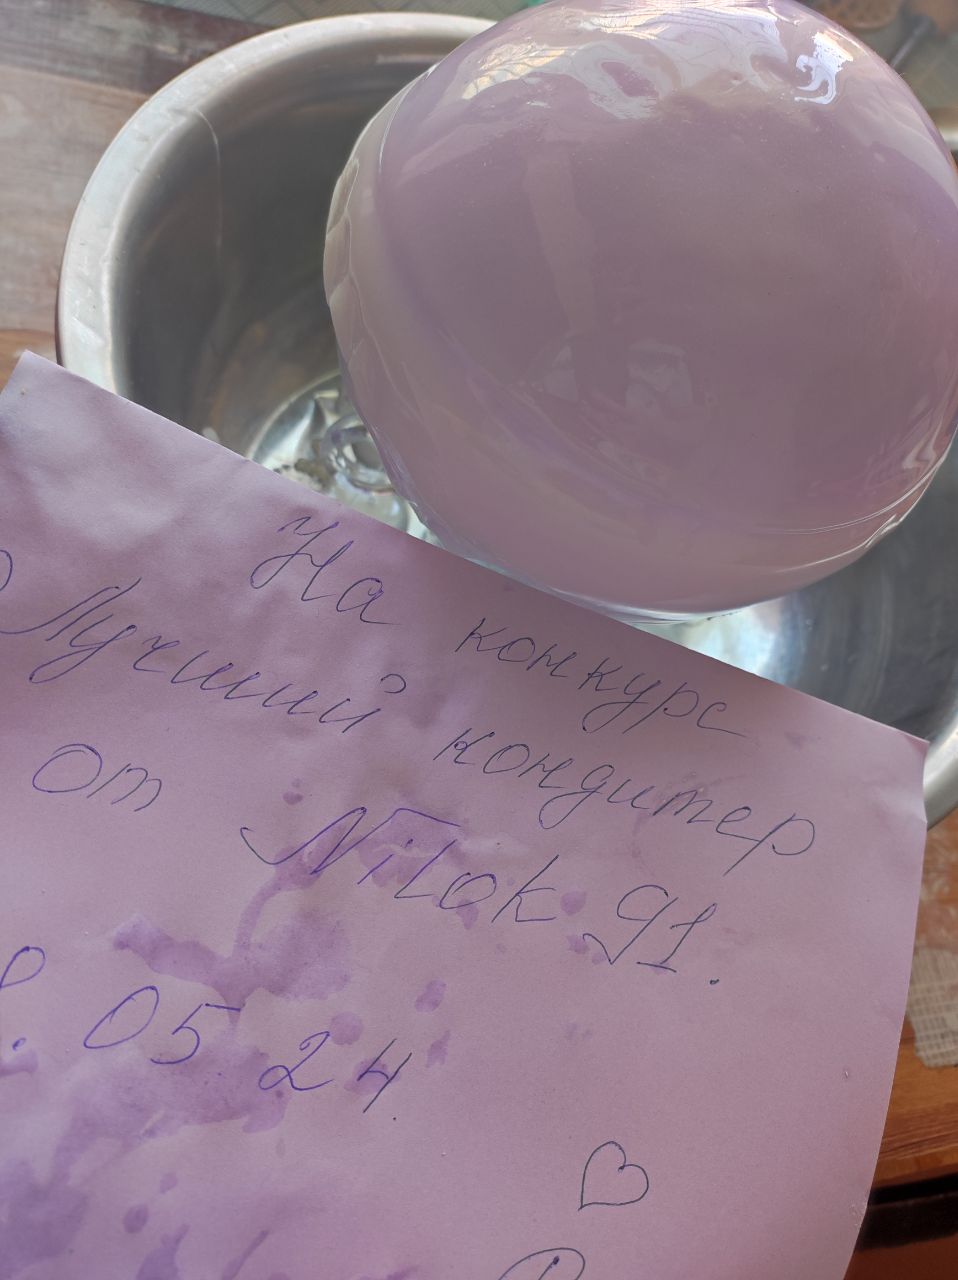 На конкурс
Лучший кондитер
от Nilok 91.
05 24.